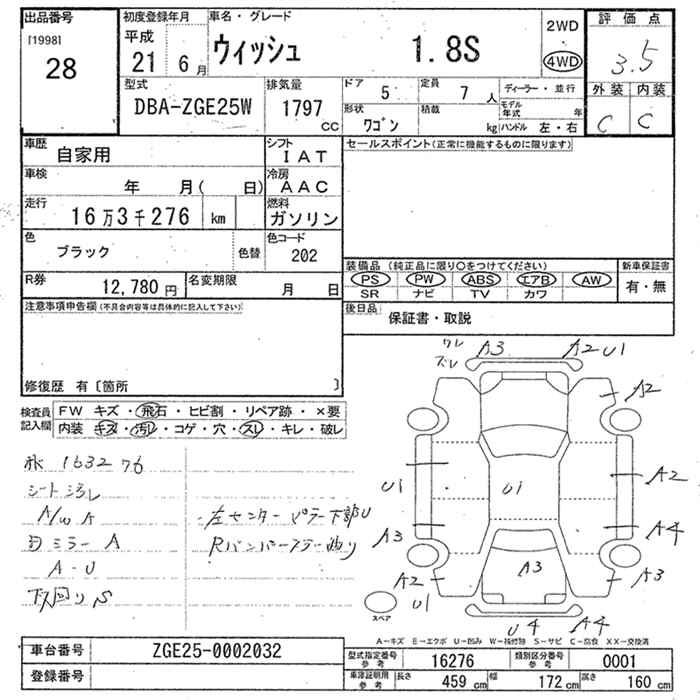 出品番号
[1998]
28
初度登録年月
平成
21 6 月
車名・グレード
ウィッシュ 1.8S
2WD
4WD
評価点
3.5
外装 内装
C C
型式
DBA-ZGE25W
排気量
1797
CC
ドア 5
定員 7 人
ディーラー・並行
形状 ワゴン
積載 kg
モデル年式 年
ハンドル 左・右
車歴 自家用
シフト IAT
車検 年 月( 日)
冷房 AAC
走行 16万3千276 km
燃料 ガソリン
色 ブラック 色替
色コード 202
R券 12,780 円
名変期限 月 日
セールスポイント(正常に機能するものに限ります)
装備品 (純正品に限り○をつけてください)
PS PW ABS エアB AW
SR ナビ TV カワ
新車保証書
有・無
後日品 保証書・取説
注意事項申告欄(不具合内容等は具体的に記入して下さい)
修復歴 有〔箇所 〕
検査員記入欄
FW キズ・飛石・ヒビ割・リペア跡・×要
内装 キズ・汚レ・コゲ・穴・スレ・キレ・破レ
163276
シート汚レ
A/W A
ミラー A
A・U
下回り S
左センターピラー下部U
Rバンパーステー曲り
ワレ
ズレ
A3
A2 U1
A2
U1
U1
A2
A3
A4
A2
U1
A3
A3
U4
A4
スペア
A-キズ E-エクボ U-凹み W-補修跡 S-サビ C-腐食 XX-交換済
車台番号 ZGE25-0002032
登録番号
型式指定番号 参考 16276
類別区分番号 参考 0001
車庫証明用 参考 長さ 459 cm 幅 172 cm 高さ 160 cm